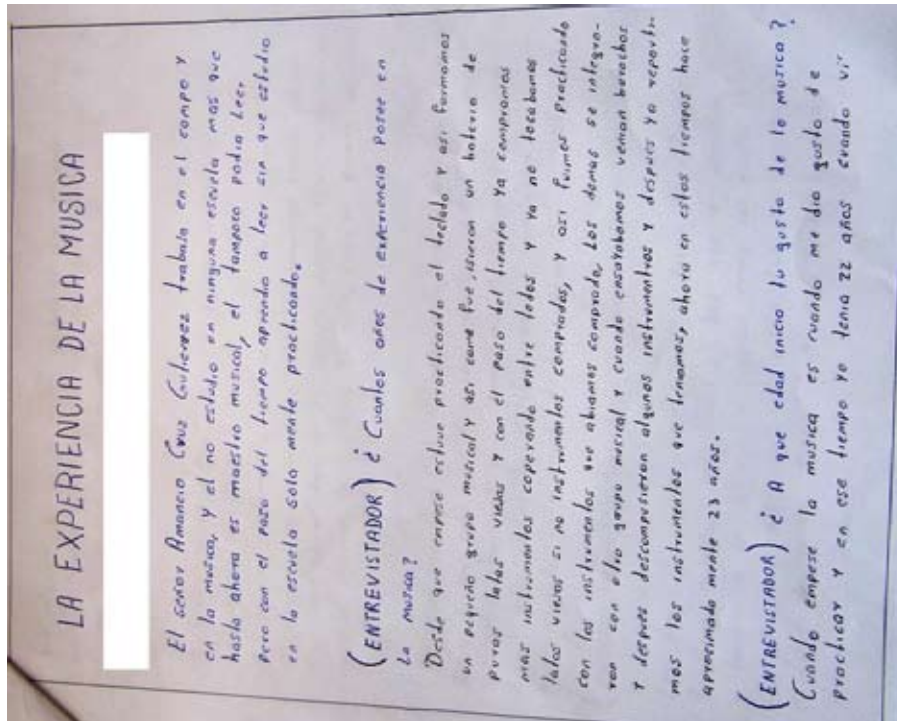 LA EXPERIENCIA DE LA MUSICA
El señor Amancio Cruz Gutierrez trabaja en el campo y
en la musica, y el no estudio en ninguna escuela mas que
hasta ahora es maestro musical, el tampoco podia leer
pero con el paso del tiempo aprendio a leer sin que estudio
en la escuela solo mente practicando.
(ENTREVISTADOR) ¿ Cuantos años de experiencia posee en
La musica?
Desde que empese estuve practicando el teclado y asi formamos
un pequeño grupo musical y asi como fue, isieron un bateria de
puros latas viejas y con el paso del tiempo ya compramos
mas instrumentos coperando entre todos y ya no tocabamos
latas viejas si no instrumentos comprados, y asi fuimos practicando
con los instrumentos que abiamos comprado, Los demas se integra-
ron con otro grupo musical y cuando ensayabamos venian borachos
y despues descompusieron algunos instrumentros y despues ya reparti-
mos los instrumentos que teniamos, ahora en estos tiempos hace
aproximado mente 23 años.
(ENTREVISTADOR) ¿ A que edad inicio tu gusto de la musica?
Cuando empese la musica es cuando me dio gusto de
practicar y en ese tiempo yo tenia 22 años cuando vi